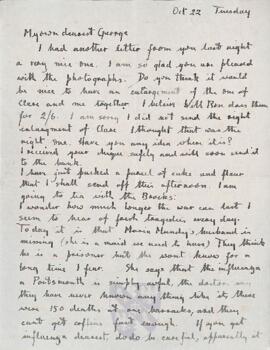 Oct 22 Tuesday
My own dearest George
I had another letter from you last night
a very nice one. I am so glad you are pleased
with the photographs. Do you think it would
be nice to have an enlargement of the one of
Clare and me together. I believe Will Ren does them
for 2/6. I am sorry I did not send the right
enlargment of Clare I thought that was the
right one. Have you any idea where it is?
I received your cheque safely and will soon send it
to the bank.
I have just packed a parcel of cake and flour
that I shall send off this afternoon. I am
going to tea with the Brocks.
I wonder how much longer the war can last I
seem to hear of fresh tragedies every day.
Today it is that Maria Mundey's husband is
missing (she is a maid we used to have) They think
he is a prisoner but she wont know for a
long time I fear. She says that the influenza
a Portsmouth is simply awful the doctors say
they have never known any thing like it there
were 150 deaths at one barracks, and they
can't get coffins fast enough. If you get
influenza dearest, do do be careful, apparently it